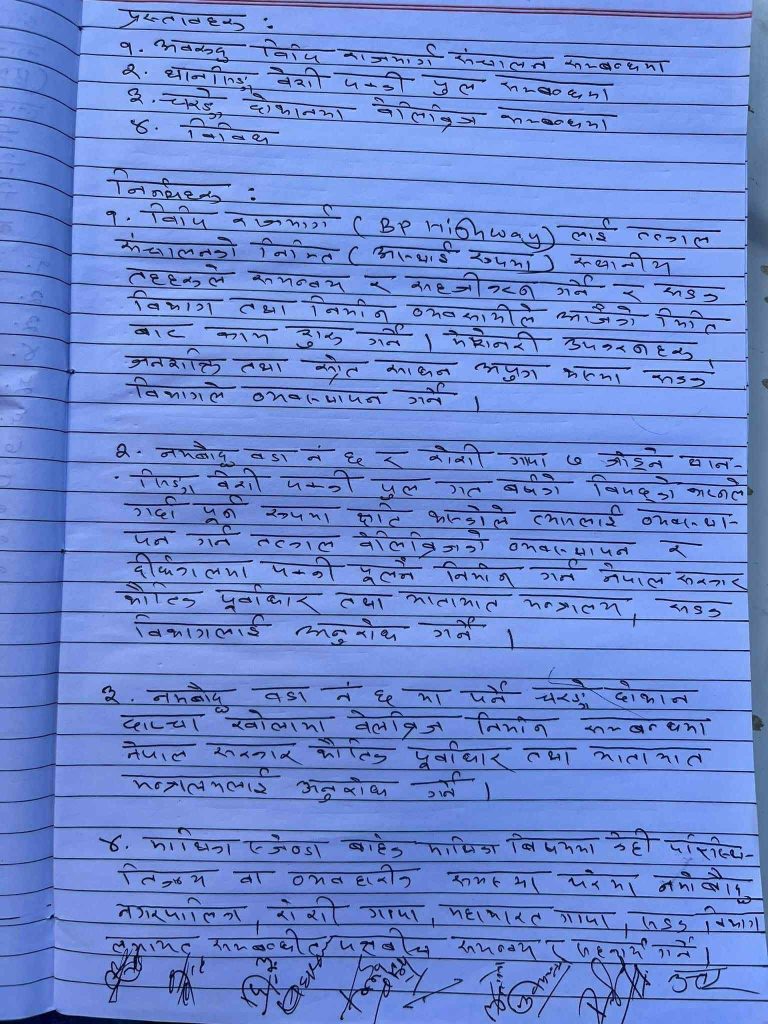 प्रस्तावहरू :
१. अवरुद्ध विपि राजमार्ग संचालन सम्बन्धमा
२. बेसी पक्की पुल सम्बन्धमा
३. दोभानमा बेलिब्रिज सम्बन्धमा
४. विविध
निर्णयहरू :
१. विपि राजमार्ग (BP Highway) लाई तत्काल
संचालनको निमित्त (अस्थाई रुपमा) स्थानीय
तहहरूले समन्वय र सहजीकरण गर्ने र सडक
विभाग तथा निर्माण व्यवसायीले आजैको मिति
बाट काम शुरू गर्ने । मेशिनरी उपकरणहरू,
जनशक्ति तथा स्रोत साधन अपुग भएमा सडक
विभागले व्यवस्थापन गर्ने ।
२. नमोबुद्ध वडा नं ६ र रोशी गापा ७ जोड्ने
बेसी पक्की पुल गत वर्षको विपदको कारणले
गर्दा पूर्ण रूपमा क्षति भएकोले त्यसलाई व्यवस्था-
पन गर्न तत्काल बेलिब्रिजको व्यवस्थापन र
दीर्घकालमा पक्की पूलनै निर्माण गर्न नेपाल सरकार
भौतिक पूर्वाधार तथा यातायात मन्त्रालय, सडक
विभागलाई अनुरोध गर्ने ।
३. नमोबुद्ध वडा नं ६ मा पर्ने दोभान
खोलामा बेलिब्रिज निर्माण सम्बन्धमा
नेपाल सरकार भौतिक पूर्वाधार तथा यातायात
मन्त्रालयलाई अनुरोध गर्ने ।
४. माथिका एजेण्डा बाहेक माथिका बिषयमा केही परिस्थि-
तिजन्य वा व्यवहारीक समस्या परेमा नमोबुद्ध
नगरपालिका, रोशी गापा, महाभारत गापा, सडक विभाग
लगायत सम्बन्धीत पक्षबीच समन्वय र सहकार्य गर्ने।